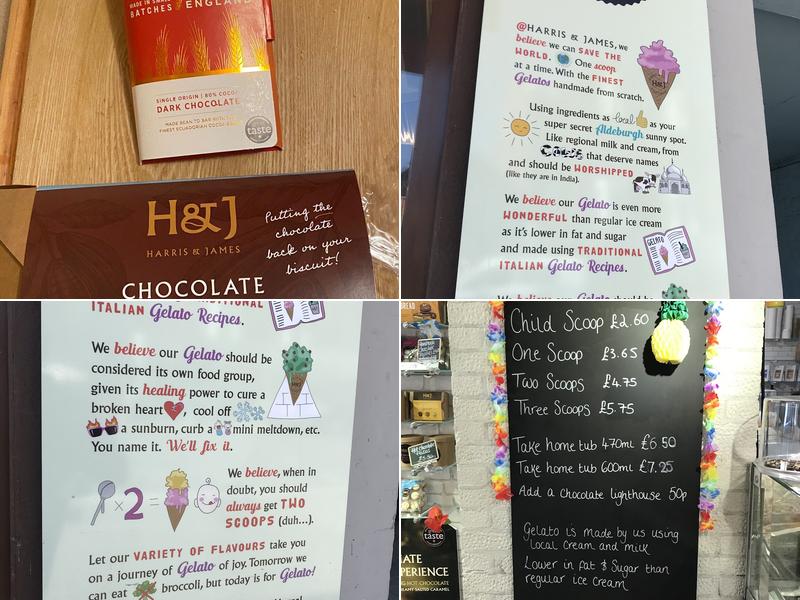 MADE IN SMALL
BATCHES ENGLAND
SINGLE ORIGIN | 80% COCOA
DARK CHOCOLATE
MADE BEAN TO BAR WITH THE
FINEST ECUADORIAN COCOA
great
taste
H&J
HARRIS & JAMES
CHOCOLATE
Putting the
chocolate
back on your
biscuit!
@HARRIS & JAMES, we
believe we can SAVE THE
WORLD. One scoop
at a time. With the FINEST
Gelatos handmade from scratch.
H&J
Using ingredients as local as your
super secret Aldeburgh sunny spot.
Like regional milk and cream, from
Cows that deserve names
and should be WORSHIPPED
(like they are in India).
We believe our Gelato is even more
WONDERFUL than regular ice cream
as it's lower in fat and sugar
and made using TRADITIONAL
ITALIAN Gelato Recipes.
GELATO
We believe our Gelato should be
TRADITIONAL
ITALIAN Gelato Recipes.
We believe our Gelato should be
considered its own food group,
given its healing power to cure a
broken heart, cool off
a sunburn, curb a mini meltdown, etc.
You name it. We'll fix it.
x2=
We believe, when in
doubt, you should
always get TWO
SCOOPS (duh...).
Let our VARIETY OF FLAVOURS take you
on a journey of Gelato of joy. Tomorrow we
can eat broccoli, but today is for Gelato!
Child Scoop £2.60
One Scoop £3.65
Two Scoops £4.75
Three Scoops £5.75
Take home tub 470ml £6.50
Take home tub 600ml £7.25
Add a chocolate lighthouse 50p
Gelato is made by us using
local cream and milk
Lower in fat & Sugar than
regular ice cream
taste
ATE
PERIENCE
HOT CHOCOLATE
SALTED CARAMEL